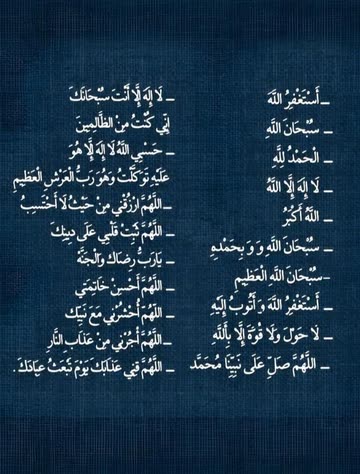 ـ أَسْتَغْفِرُ اللَّهَ
ـ سُبْحَانَ اللَّهِ
ـ الْحَمْدُ لِلَّهِ
ـ لَا إِلَهَ إِلَّا اللَّهُ
ـ اللَّهُ أَكْبَرُ
ـ سُبْحَانَ اللَّهِ وَ وَ بِحَمْدِهِ
ـ سُبْحَانَ اللَّهِ الْعَظِيمِ
ـ أَسْتَغْفِرُ اللَّهَ وَ أَتُوبُ إِلَيْهِ
ـ لَا حَوْلَ وَلَا قُوَّةَ إِلَّا بِاللَّهِ
ـ اللَّهُمَّ صَلِّ عَلَى نَبِيِّنَا مُحَمَّد
ـ لَا إِلَهَ إِلَّا أَنْتَ سُبْحَانَكَ
إِنِّي كُنْتُ مِنَ الظَّالِمِينَ
ـ حَسْبِي اللَّهُ لَا إِلَهَ إِلَّا هُوَ
عَلَيْهِ تَوَكَّلْتُ وَهُوَ رَبُّ الْعَرْشِ الْعَظِيمِ
ـ اللَّهُمَّ ارْزُقْنِي مِنْ حَيْثُ لَا أَحْتَسِبُ
ـ اللَّهُمَّ ثَبِّتْ قَلْبِي عَلَى دِينِكَ
ـ يَارَبِّ رِضَاكَ وَالْجَنَّةَ
ـ اللَّهُمَّ أَحْسِنْ خَاتِمَتِي
ـ اللَّهُمَّ احْشُرْنِي مَعَ نَبِيِّكَ
ـ اللَّهُمَّ أَجِرْنِي مِنْ عَذَابِ النَّارِ
ـ اللَّهُمَّ قِنِي عَذَابَكَ يَوْمَ تَبْعَثُ عِبَادَكَ .